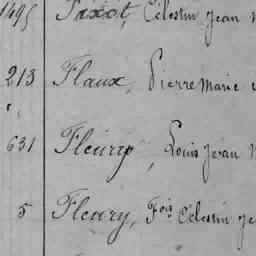 1495 Faxot, Célestin Jean
213 Flaux, Pierre Marie
631 Fleury, Louis Jean
5 Fleury, Fois Célestin Je